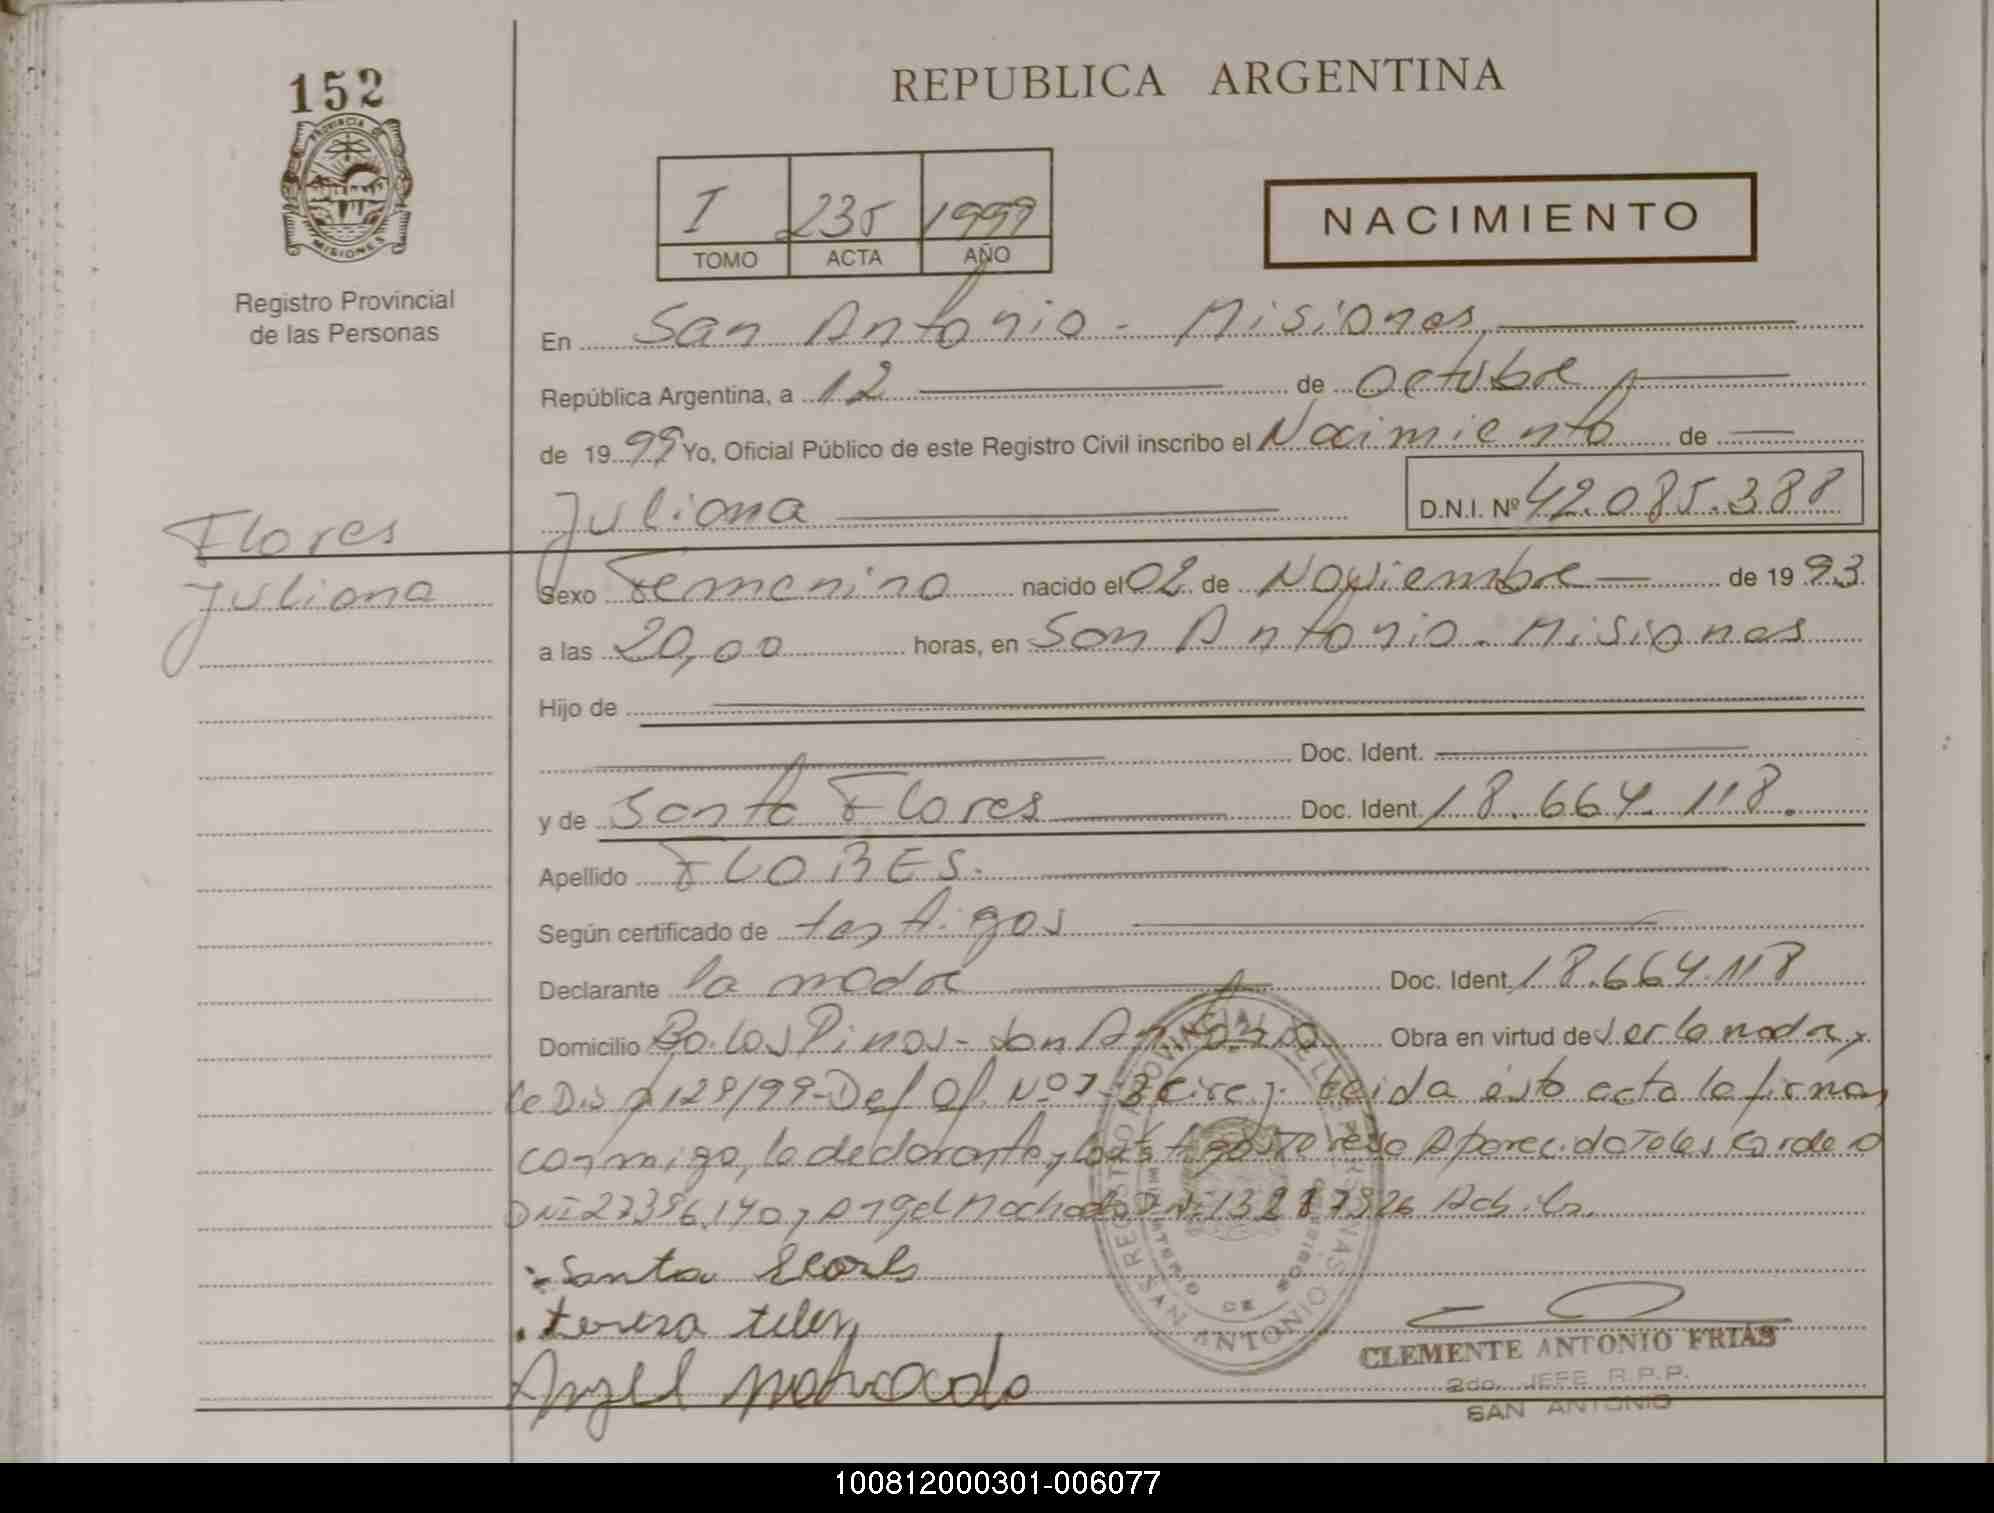 152
REPUBLICA ARGENTINA
PROVINCIA DE MISIONES
Registro Provincial
de las Personas
I 235 1999
TOMO ACTA AÑO
NACIMIENTO
En San Antonio - Misiones
República Argentina, a 12 de Octubre
de 1999 Yo, Oficial Público de este Registro Civil inscribo el Nacimiento de
Juliana D.N.I. Nº 42.085.388
Flores
Juliana
Sexo Femenino nacido el 02 de Noviembre de 1993
a las 20,00 horas, en San Antonio - Misiones
Hijo de
Doc. Ident.
y de Santa Flores Doc. Ident. 18.664.118.
Apellido FLORES.
Según certificado de testigos
Declarante la madre Doc. Ident. 18.664.118
Domicilio Bo. Los Pinos - San Antonio Obra en virtud de ser la madre y
Dis 129/99 - Def Of. Nº 7 - 3 Circ. Leida esta acta la firman
conmigo, la declarante y los testigos Teresa Aparecida Teles Cordeiro
DNI 27396.140 y Angel Machado DNI 13287326
Santa Flores
teresa teles
Angel Mahcado
CLEMENTE ANTONIO FRIAS
2do. JEFE R.P.P.
SAN ANTONIO
100812000301-006077